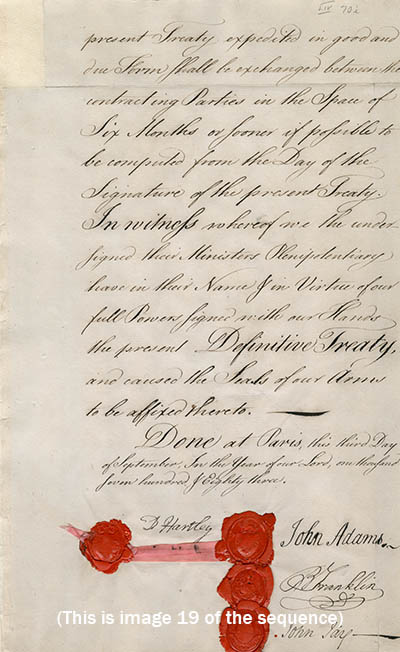 LIV 702
present Treaty expedited in good and
due Form shall be exchanged between the
contracting Parties in the Space of
Six Months or sooner if possible to
be computed from the Day of the
Signature of the present Treaty.
In witness whereof we the under-
signed their Ministers Plenipotentiary
have in their Name & in Virtue of our
full Powers signed with our Hands
the present Definitive Treaty,
and caused the Seals of our Arms
to be affixed thereto.
Done at Paris, this third Day
of September, In the Year of our Lord, one thousand
seven hundred & Eighty three.
D Hartley
John Adams
B Franklin
(This is image 19 of the sequence)
John Jay